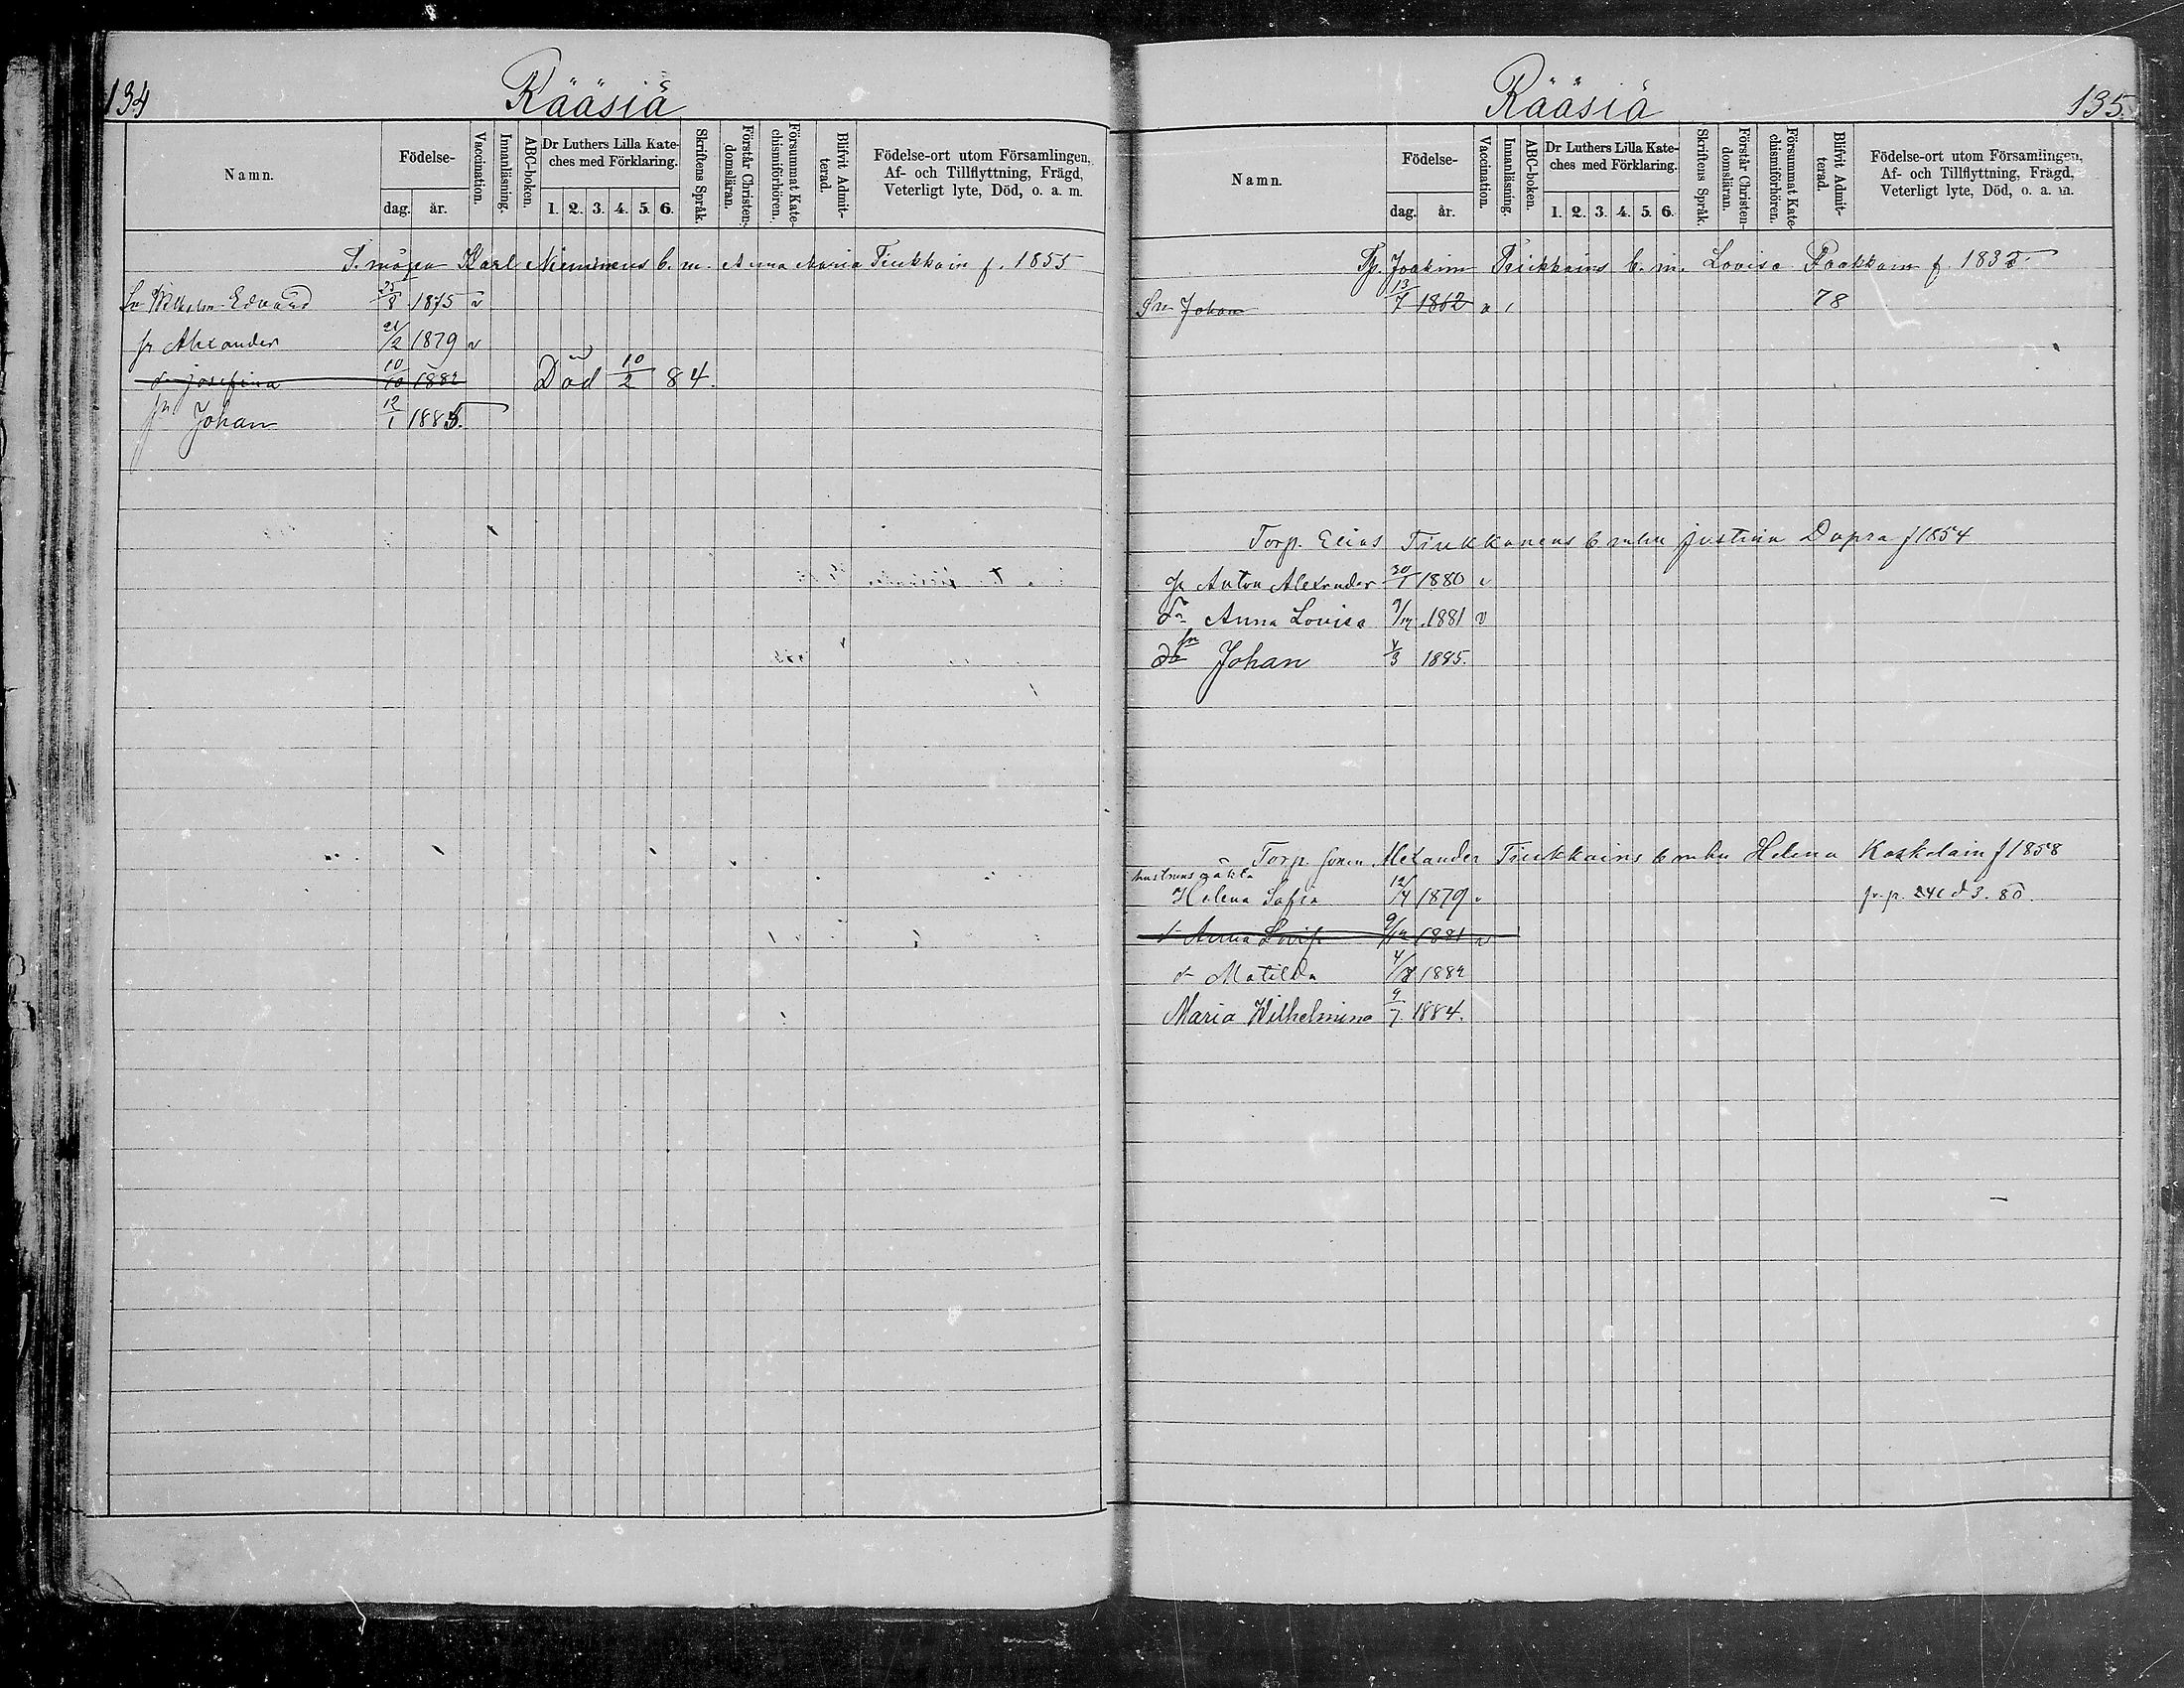 134
Rääsiä
Namn.
Födelse-
dag. år.
Vaccination.
Innanläsning.
ABC-boken.
Dr Luthers Lilla Kate-
ches med Förklaring.
1. 2. 3. 4. 5. 6.
Skriftens Språk.
Förstår Christen-
domsläran.
Försummat Kate-
chismiförhören.
Blifvit Admit-
terad.
Födelse-ort utom Församlingen,
Af- och Tillflyttning, Frägd,
Veterligt lyte, Död, o. a. m.
Karl Nieminens b. m. Anna Maria Tiukkain f. 1855
Sn Wilhelm Edvard 25/8 1875 v
sn Alexander 21/2 1879 v
dr Josefina 10/10 1882 Död 10/2 84.
sn Johan 12/1 1885.
135.
Rääsiä
Namn.
Födelse-
dag. år.
Vaccination.
Innanläsning.
ABC-boken.
Dr Luthers Lilla Kate-
ches med Förklaring.
1. 2. 3. 4. 5. 6.
Skriftens Språk.
Förstår Christen-
domsläran.
Försummat Kate-
chismiförhören.
Blifvit Admit-
terad.
Födelse-ort utom Församlingen,
Af- och Tillflyttning, Frägd,
Veterligt lyte, Död, o. a. m.
Tp. Joakim b. m. Lovisa Paakkain f.
Sn Johan 13/7 1862 78
Torp. Elias Tiukkanens b m hu Justina Dapra f 1854
sn Anton Alexander 30/1 1880 v
dr Anna Lovisa 9/12 1881 v
sn
Johan 4/3 1885.
Torp. sonen Alexander Tiukkains b m hu Helena Koskelain f 1858
hustruns oäkta
Helena Sofia 12/4 1879 v 3. 80.
dr Anna Lovisa 9/12 1881 v
dr Matilda 4/8 1882
Maria Wilhelmina 9/7. 1884.